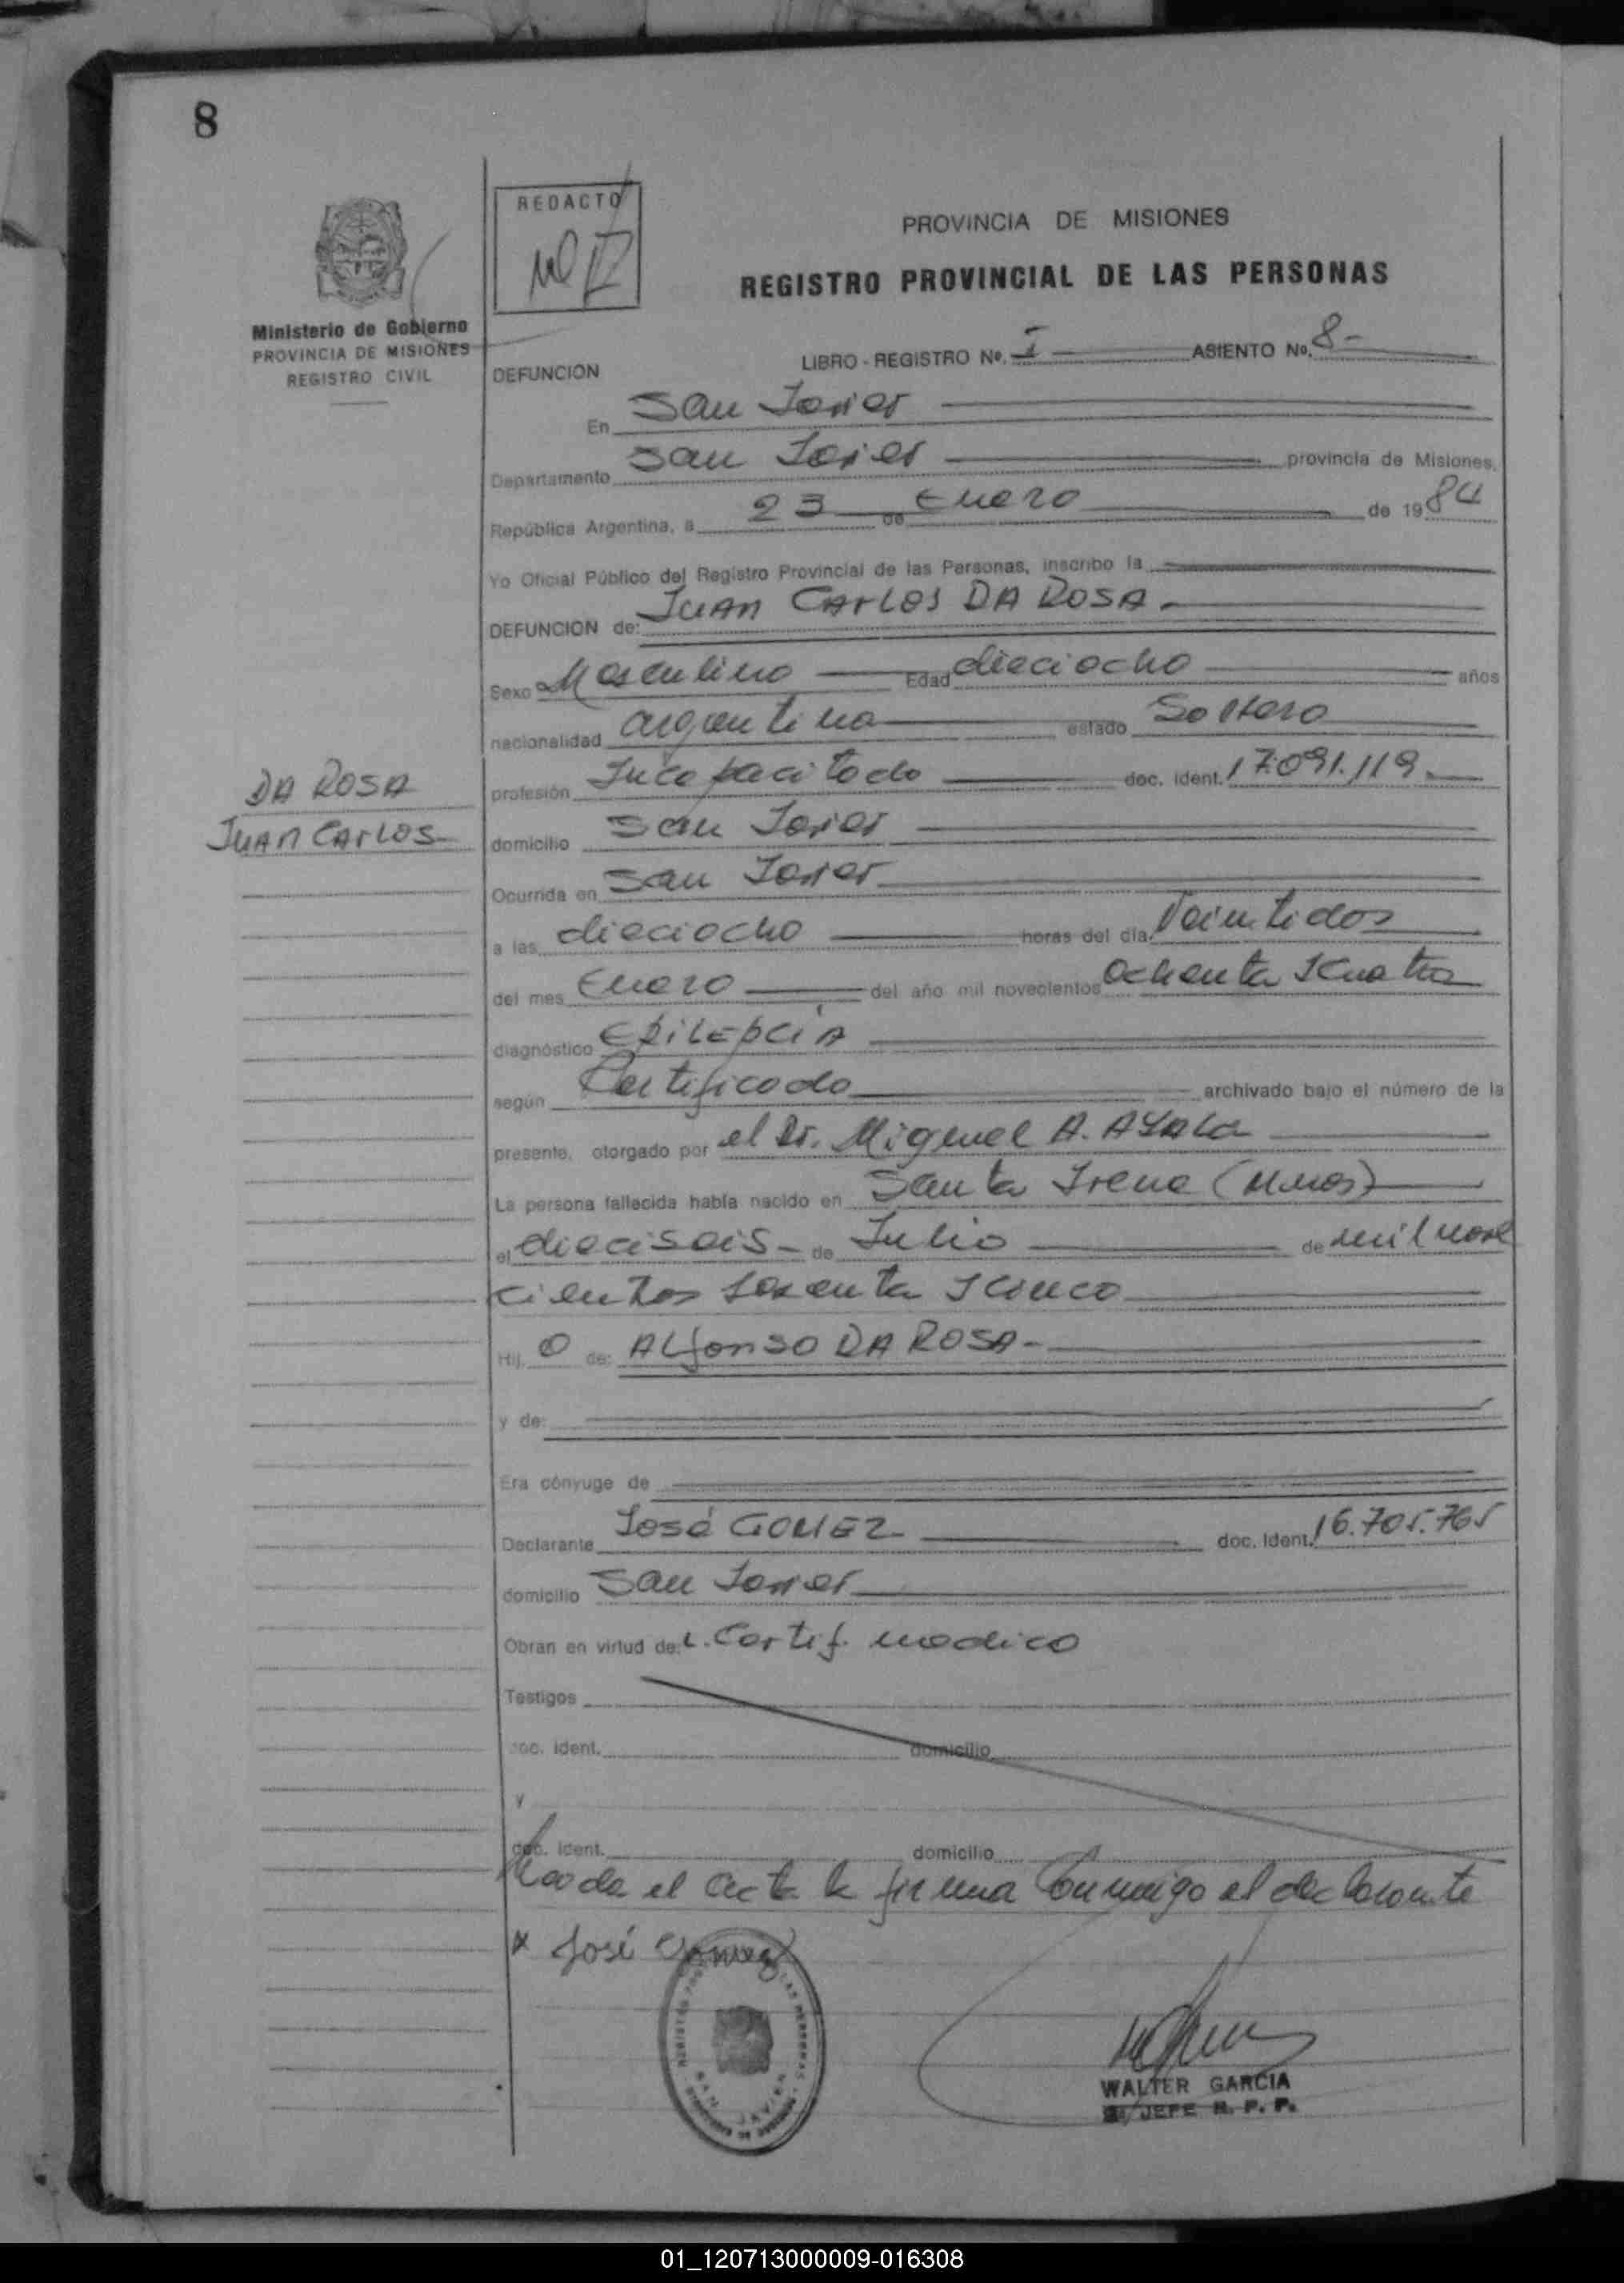 8
REDACTO
PROVINCIA DE MISIONES
REGISTRO PROVINCIAL DE LAS PERSONAS
Ministerio de Gobierno
PROVINCIA DE MISIONES
REGISTRO CIVIL
LIBRO - REGISTRO Nº. I ASIENTO No. 8-
DEFUNCION
En San Javier
Departamento San Javier provincia de Misiones,
República Argentina, a 23 de Enero de 1984
Yo Oficial Público del Registro Provincial de las Personas, inscribo la
DEFUNCION de: JUAN CARLOS DA ROSA.-
Sexo Masculino Edad dieciocho años
nacionalidad argentina estado Soltero
DA ROSA
JUAN CARLOS
profesión Incapacitado doc. ident. 17.091.119.
domicilio San Javier
Ocurrida en San Javier
a las dieciocho horas del día Veintidos
del mes Enero del año mil novecientos Ochenta y Cuatro
diagnóstico EpiLEpCiA
según Certificado archivado bajo el número de la
presente, otorgado por el Dr. Miguel A. AYALA
La persona fallecida había nacido en Santa Irene (Mnes)
el dieciseis- de Julio de mil nove
cientos sesenta y cinco
Hij o de: ALfonso DA ROSA-
y de:
Era cónyuge de
Declarante José GOMEZ- doc. ident. 16.705.765
domicilio San Javier
Obran en virtud de: L. Certif. medico
Testigos
doc. ident. domicilio
y
doc. ident. domicilio
Leida el acta la firma Conmigo el declarante
x José Gomez
SAN JAVIER
WALTER GARCIA
JEFE R. P. P.
01_120713000009-016308